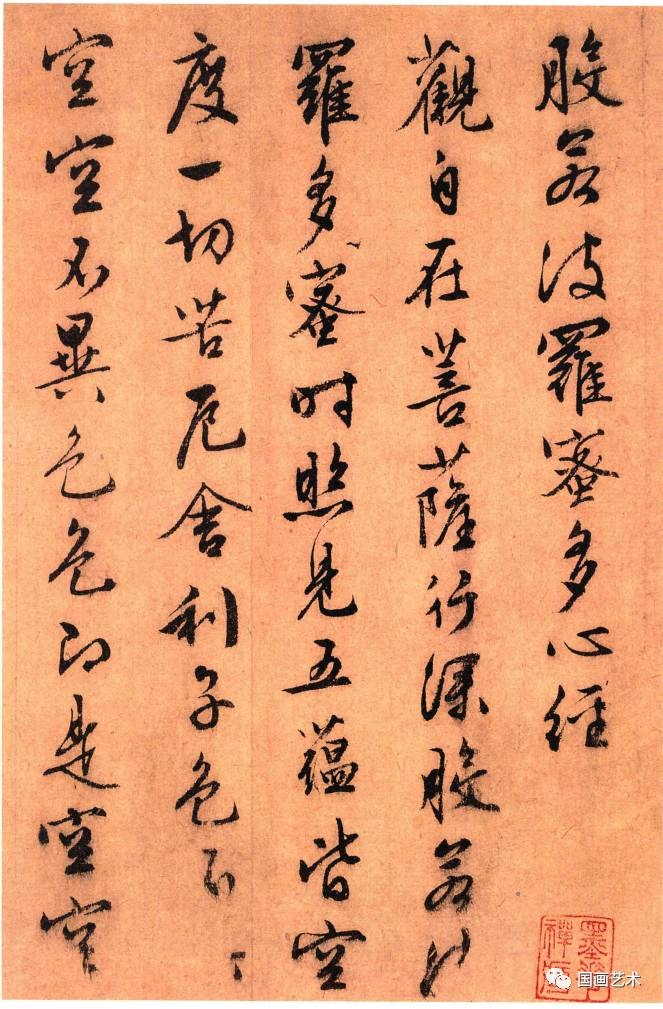 般若波羅蜜多心經
觀自在菩薩行深般若波
羅多蜜時照見五蘊皆空
度一切苦厄舍利子色不
空空不異色色即是空空
墨華
禪
国画艺术